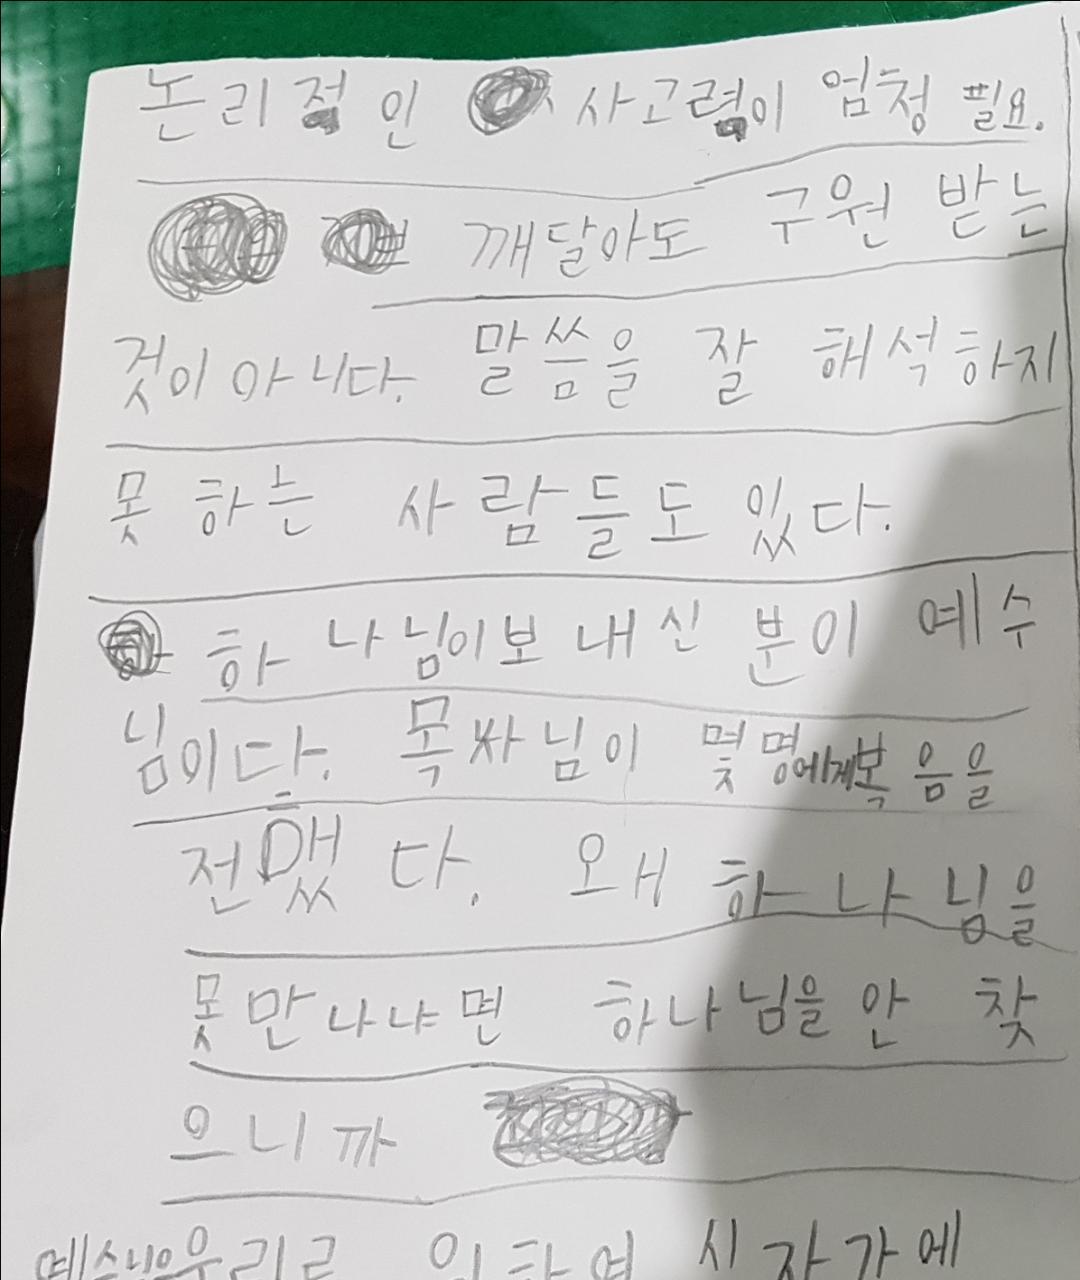 논리적인 사고력이 엄청 필요.
깨달아도 구원 받는
것이 아니다. 말씀을 잘 해석하지
못 하는 사람들도 있다.
하나님이 보내신 분이 예수
님이다. 목싸님이 몇 명에게 복음을
전했다. 왜 하나님을
못만나냐면 하나님을 안 찾
으니까
예수님은 우리를 위하여 십자가에